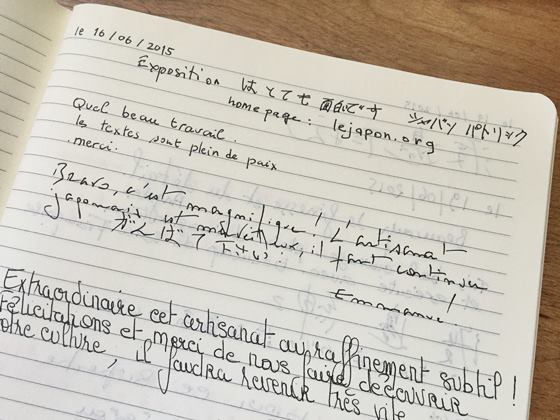 le 16/06/2015
Exposition はとても面白いです シルバン パトリック
home page: lejapon.org
Quel beau travail.
les textes sont plein de paix
merci.
Bravo, c'est magnifique ! L'artisanat
japonais est merveilleux, il faut continuer !
がんばって下さい!
Emmanuel.
Extraordinaire cet artisanat au raffinement subtil !
Félicitations et merci de nous faire découvrir
otre culture, il faudra revenir très vite